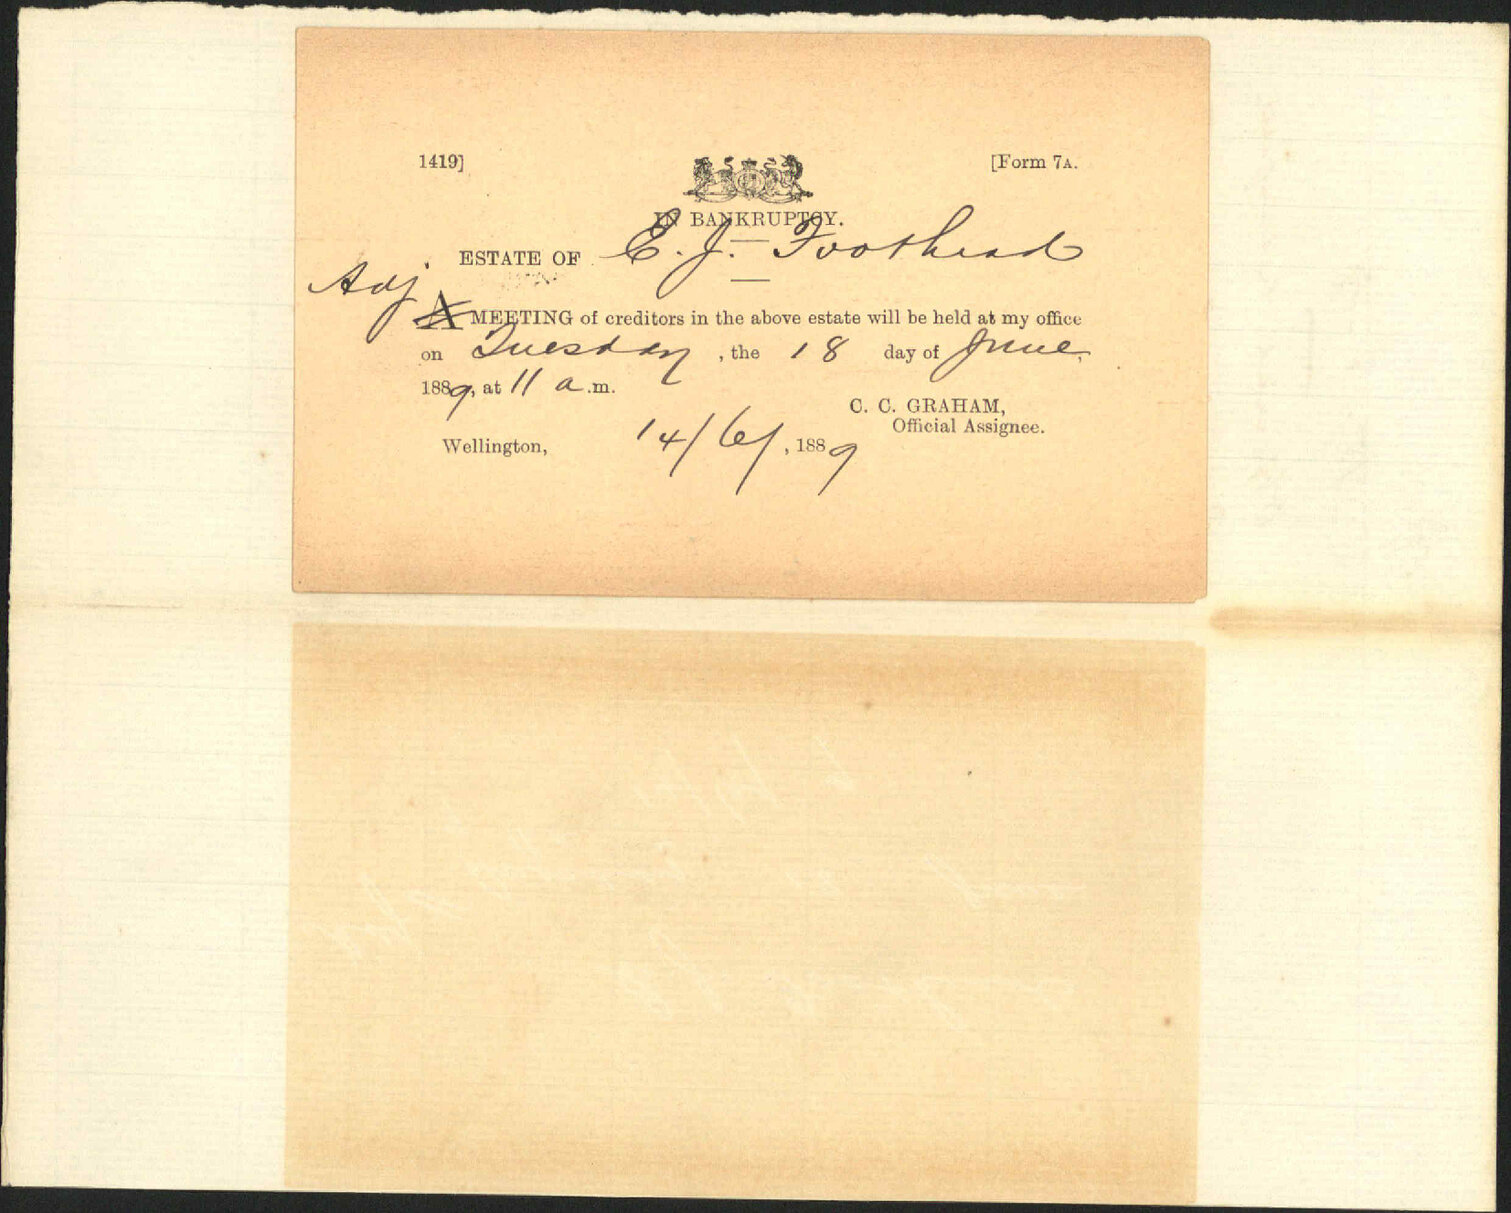 1419]
[Form 7A.
IN BANKRUPTCY.
ESTATE OF E. J. Foothead
Adj
A MEETING of creditors in the above estate will be held at my office
on Tuesday, the 18 day of June,
1889, at 11 a.m.
C. C. GRAHAM,
Official Assignee.
Wellington, 14/6/, 1889